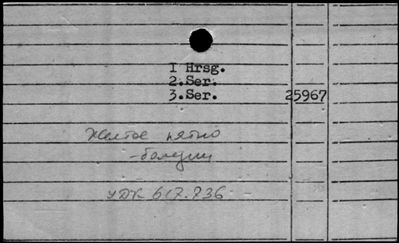 I Hrsg.
2.Ser.
3.Ser. 25967
Желтое пятно
-болезни
УДК 617.736